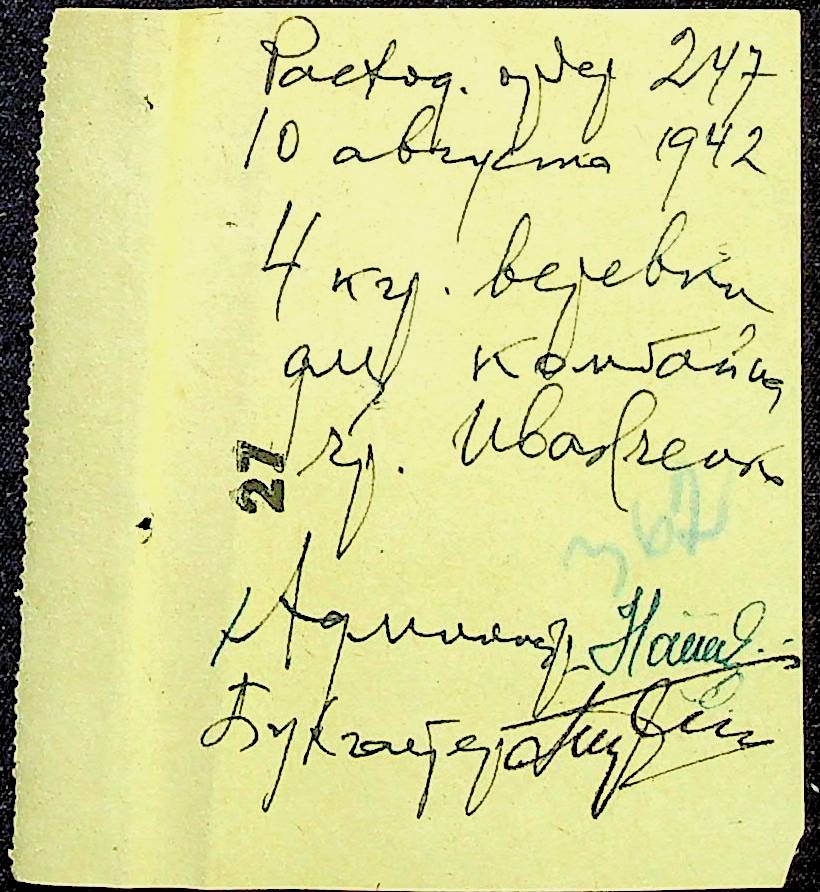 Расход. ордер 247
10 августа 1942
4 кгр. веревки
для комбайна
гр. Иванченко
27
Администр.
Бухгалтер